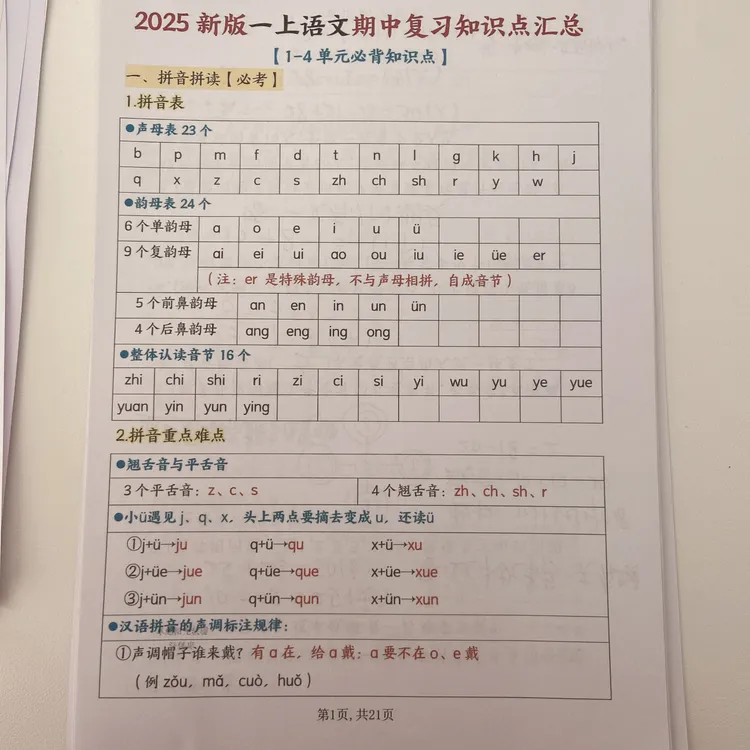 2025 新版一上语文期中复习知识点汇总
【1-4 单元必背知识点】
一、拼音拼读【必考】
1.拼音表
●声母表 23 个
b p m f d t n l g k h j
q x z c s zh ch sh r y w
●韵母表 24 个
6 个单韵母 a o e i u ü
9 个复韵母 ai ei ui ao ou iu ie üe er
(注: er 是特殊韵母, 不与声母相拼, 自成音节)
5 个前鼻韵母 an en in un ün
4 个后鼻韵母 ang eng ing ong
●整体认读音节 16 个
zhi chi shi ri zi ci si yi wu yu ye yue
yuan yin yun ying
2.拼音重点难点
●翘舌音与平舌音
3 个平舌音: z、c、s 4 个翘舌音: zh、ch、sh、r
●小ü遇见 j、q、x, 头上两点要摘去变成 u, 还读ü
①j+ü→ju q+ü→qu x+ü→xu
②j+üe→jue q+üe→que x+üe→xue
③j+ün→jun q+ün→qun x+ün→xun
●汉语拼音的声调标注规律:
①声调帽子谁来戴? 有 a 在, 给 a 戴; a 要不在 o、e 戴
(例 zǒu, mǎ, cuò, huǒ)
第1页, 共21页